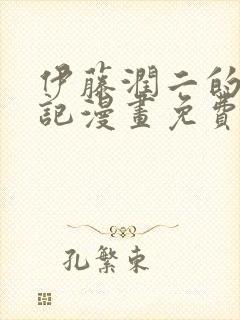 伊藤潤二的
記漫畫免費
孔繁東